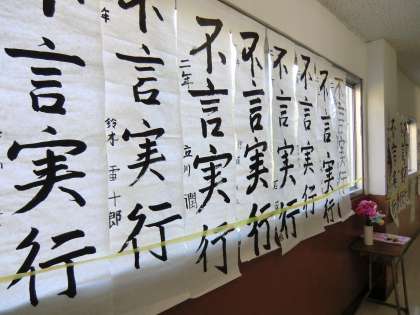 不言実行
年
不言実行
鈴木 雷十郎
不言実行
二年 立川 潤
不言実行
不言実行
不言実行
不言実行
不言実行